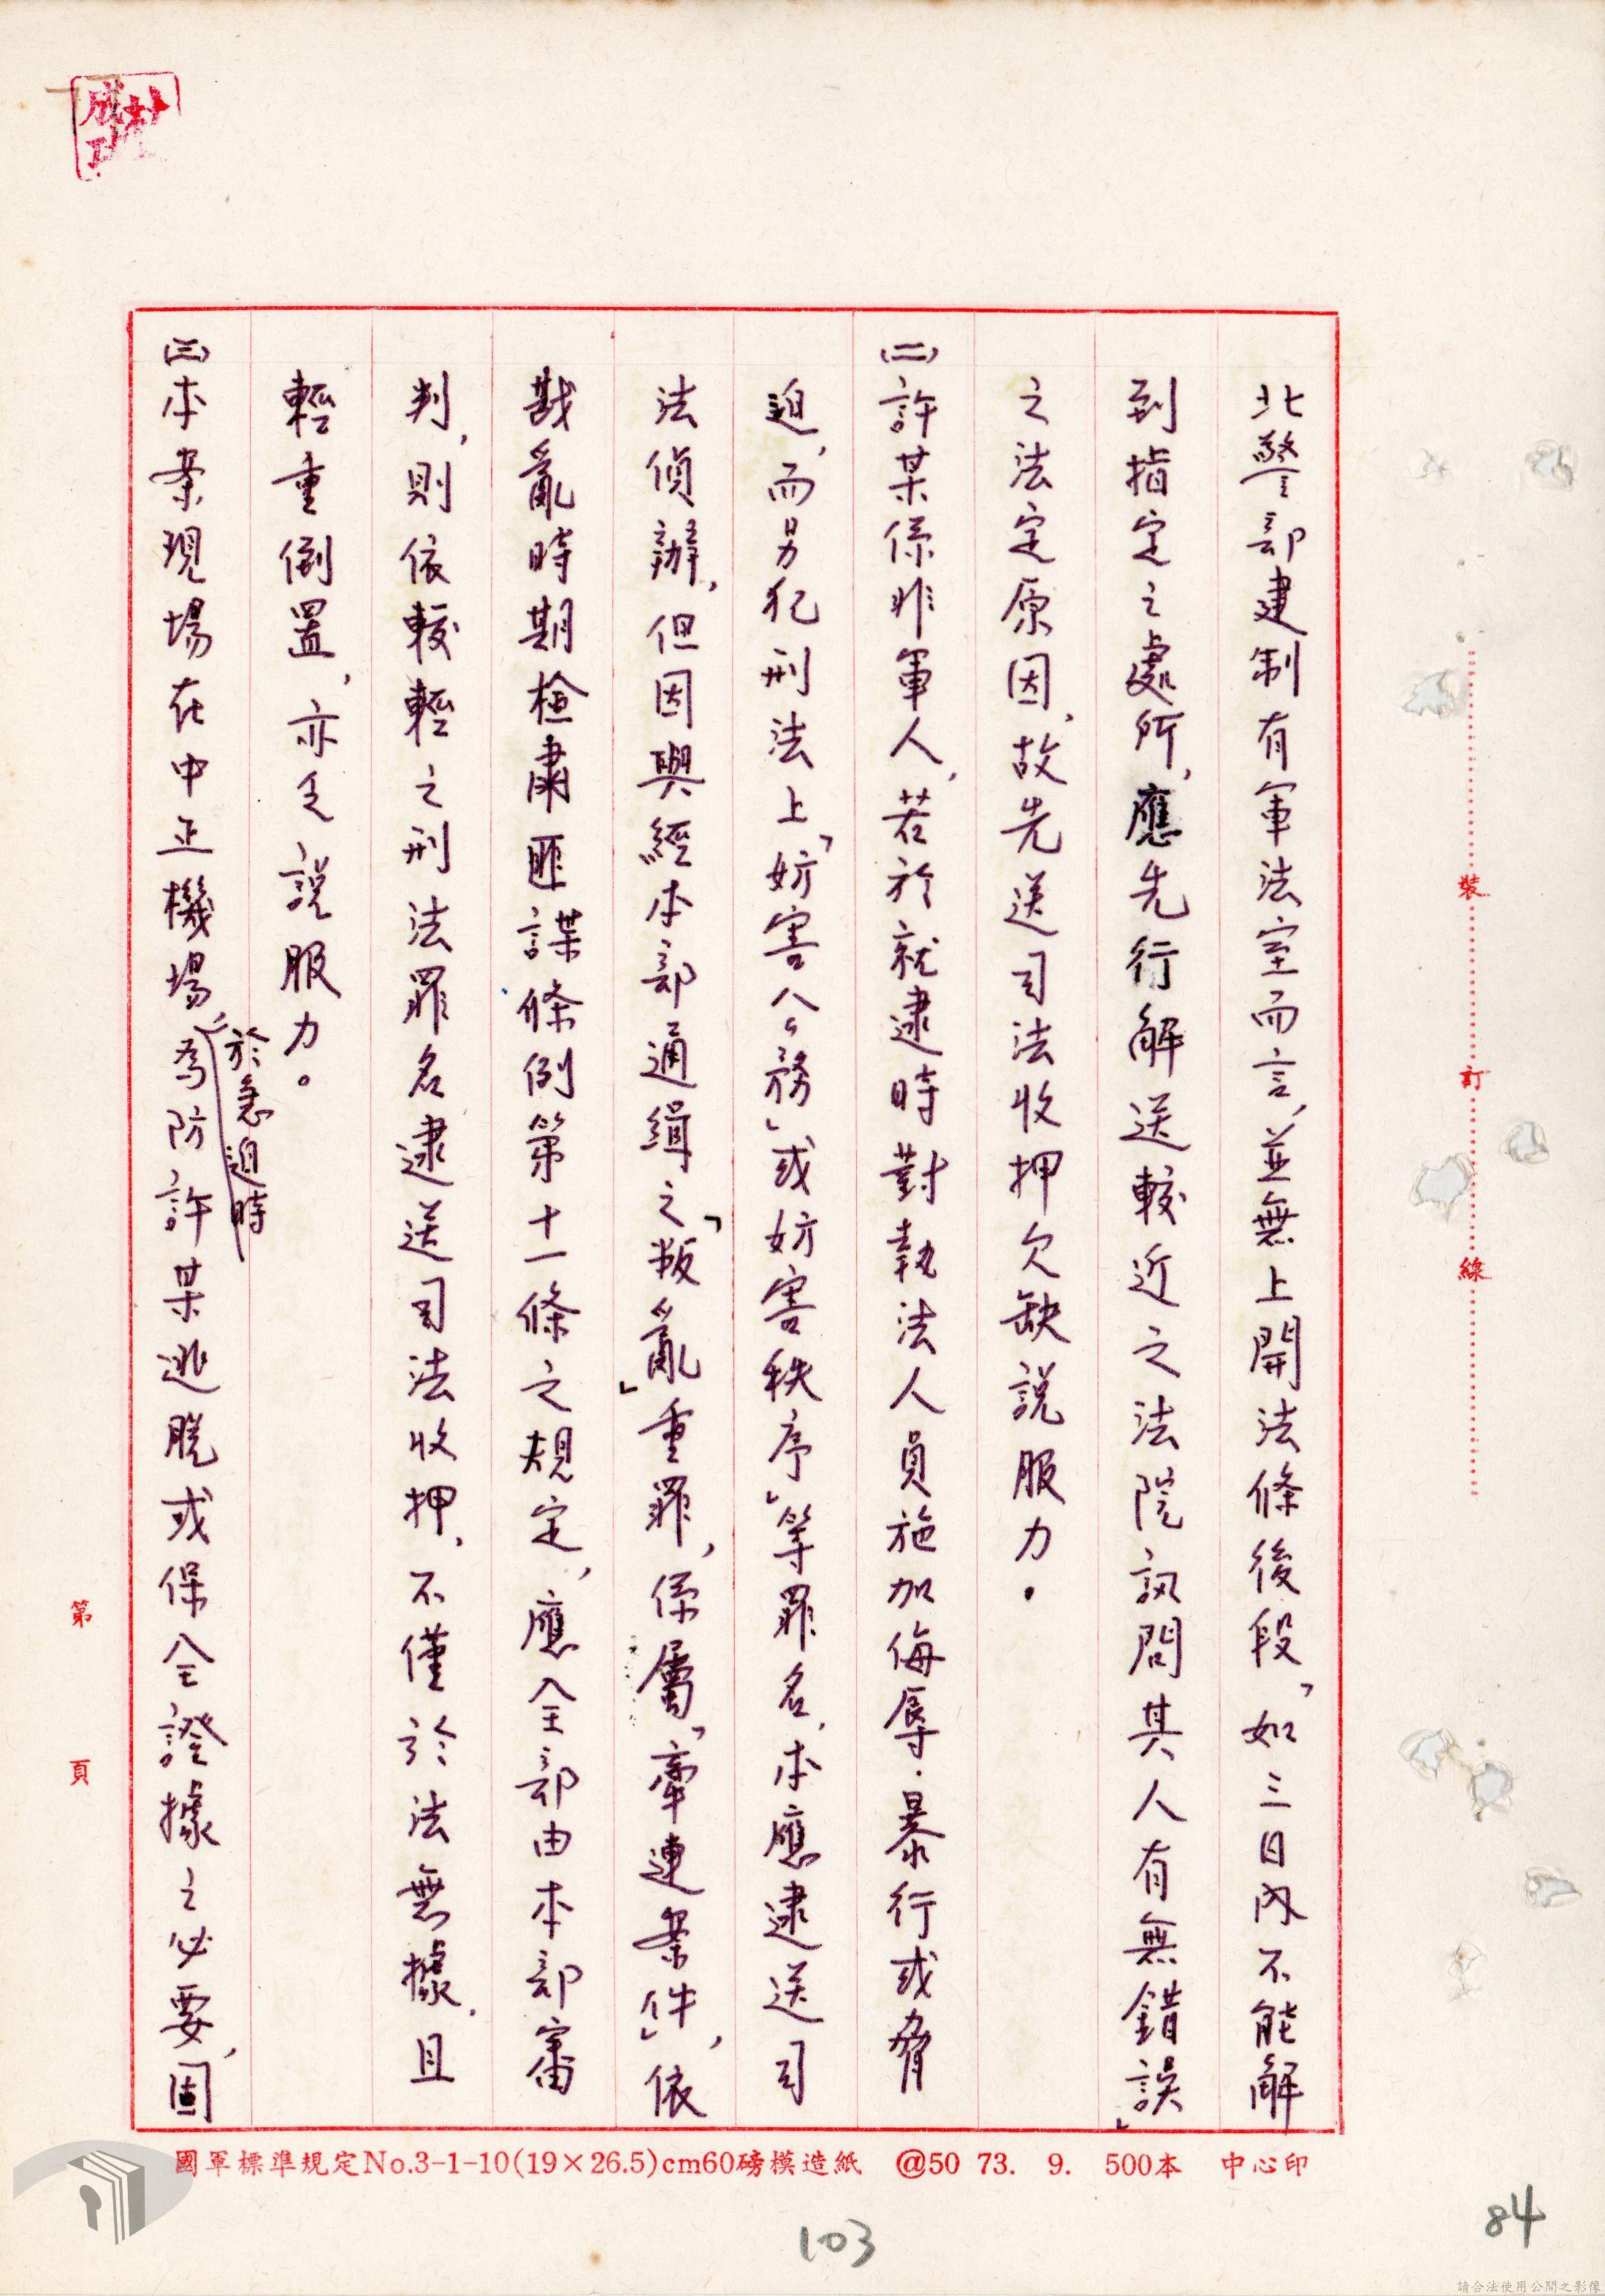 北警部建制有軍法室而言，並無上開法條後段「如三日內不能解
到指定之處所，應先行解送較近之法院訊問其人有無錯誤」
之法定原因，故先送司法收押欠缺說服力。
(二)許某係非軍人，若於就逮時對執法人員施加侮辱．暴行或脅
迫，而另犯刑法上「妨害公務」或妨害秩序」等罪名，本應逮送司
法偵辦，但因與經本部通緝之「叛亂」重罪，係屬「牽連案件」，依
戡亂時期檢肅匪諜條例第十一條之規定，應全部由本部審
判，則依較輕之刑法罪名逮送司法收押，不僅於法無據，且
輕重倒置，亦乏說服力。
於急迫時
(三)本案現場在中正機場，為防許某逃脫或保全證據之必要，固
裝
訂
線
第
頁
國軍標準規定No.3-1-10(19×26.5)cm60磅模造紙 @50 73. 9. 500本 中心印
103
84
請合法使用公開之影像